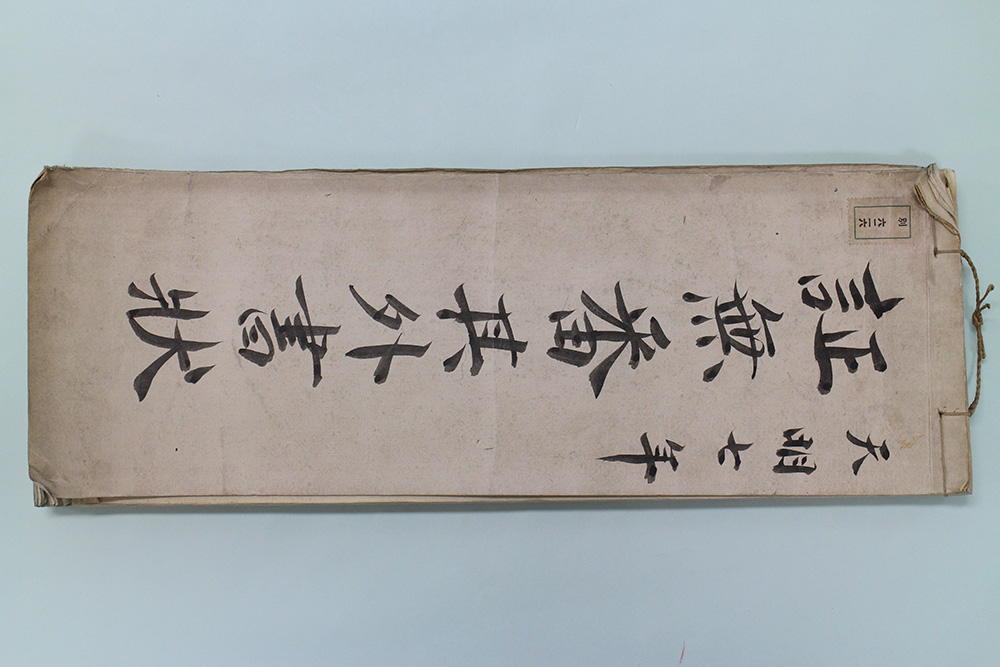 天明七年
証無番其外書状
別
六二六